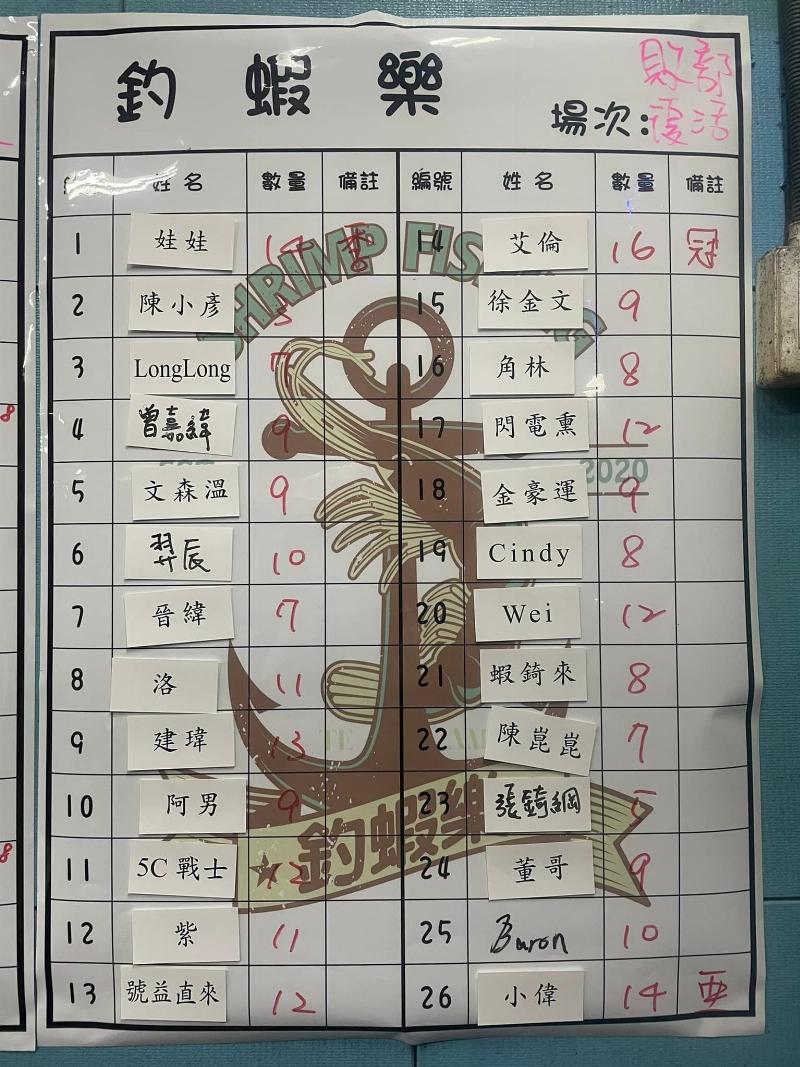 釣蝦樂
場次:敗部
復活
姓名 數量 備註 編號 姓名 數量 備註
1 娃娃 14 季 14 艾倫 16 冠
2 陳小彥 3 15 徐金文 9
3 LongLong 7 16 角林 8
4 曾嘉緯 9 17 閃電熏 12
5 文森溫 9 18 金豪運 9
6 羿辰 10 19 Cindy 8
7 晉緯 7 20 Wei 12
8 洛 11 21 蝦錡來 8
9 建瑋 13 22 陳崑崑 7
10 阿男 9 23 張錡綱
11 5C戰士 12 24 董哥 9
12 紫 11 25 Baron 10
13 號益直來 12 26 小偉 14 亞
SHRIMP FIS
2020
釣蝦樂
8
8